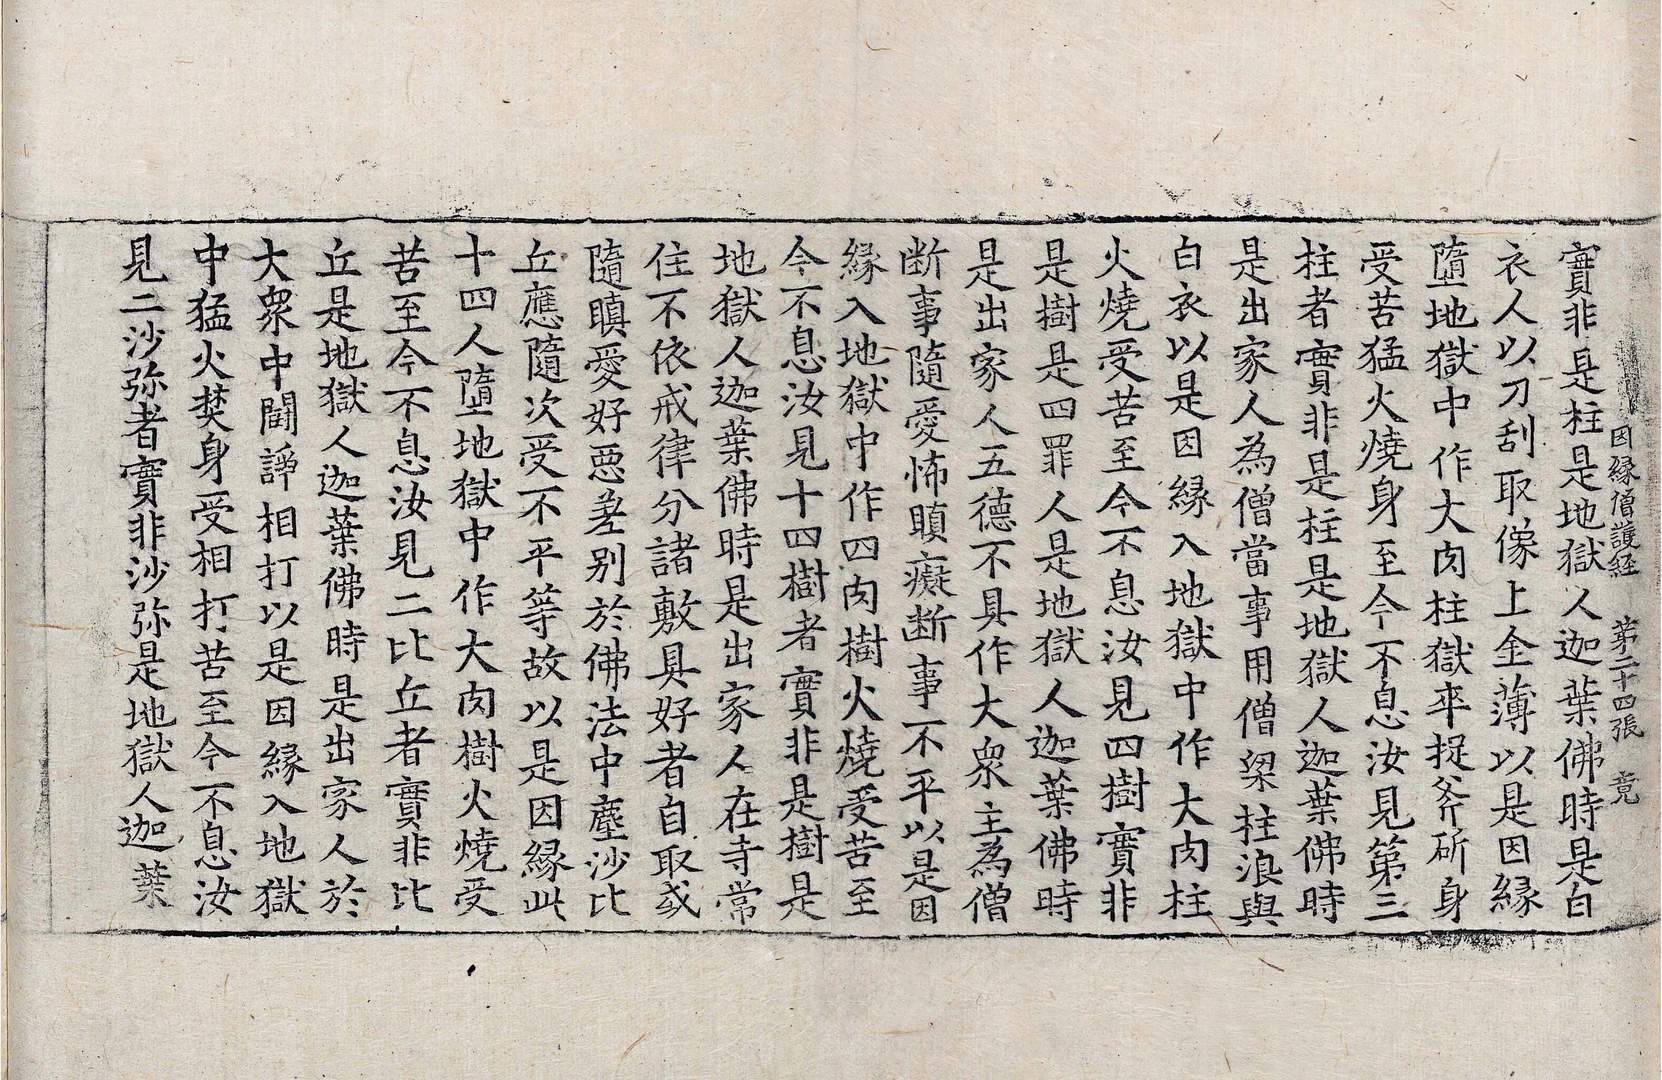 因緣僧護経 第二十四張 竟
實非是柱是地獄人迦葉佛時是白
衣人以刀刮取像上金薄以是因緣
墮地獄中作大肉柱獄卒捉斧斫身
受苦猛火燒身至今不息汝見第三
柱者實非是柱是地獄人迦葉佛時
是出家人為僧當事用僧梁柱浪與
白衣以是因緣入地獄中作大肉柱
火燒受苦至今不息汝見四樹實非
是樹是四罪人是地獄人迦葉佛時
是出家人五德不具作大衆主為僧
断事隨愛怖瞋癡断事不平以是因
緣入地獄中作四肉樹火燒受苦至
今不息汝見十四樹者實非是樹是
地獄人迦葉佛時是出家人在寺常
住不依戒律分諸敷具好者自取或
隨瞋愛好惡差别於佛法中塵沙比
丘應隨次受不平等故以是因緣此
十四人墮地獄中作大肉樹火燒受
苦至今不息汝見二比丘者實非比
丘是地獄人迦葉佛時是出家人於
大衆中鬪諍相打以是因緣入地獄
中猛火焚身受相打苦至今不息汝
見二沙弥者實非沙弥是地獄人迦葉